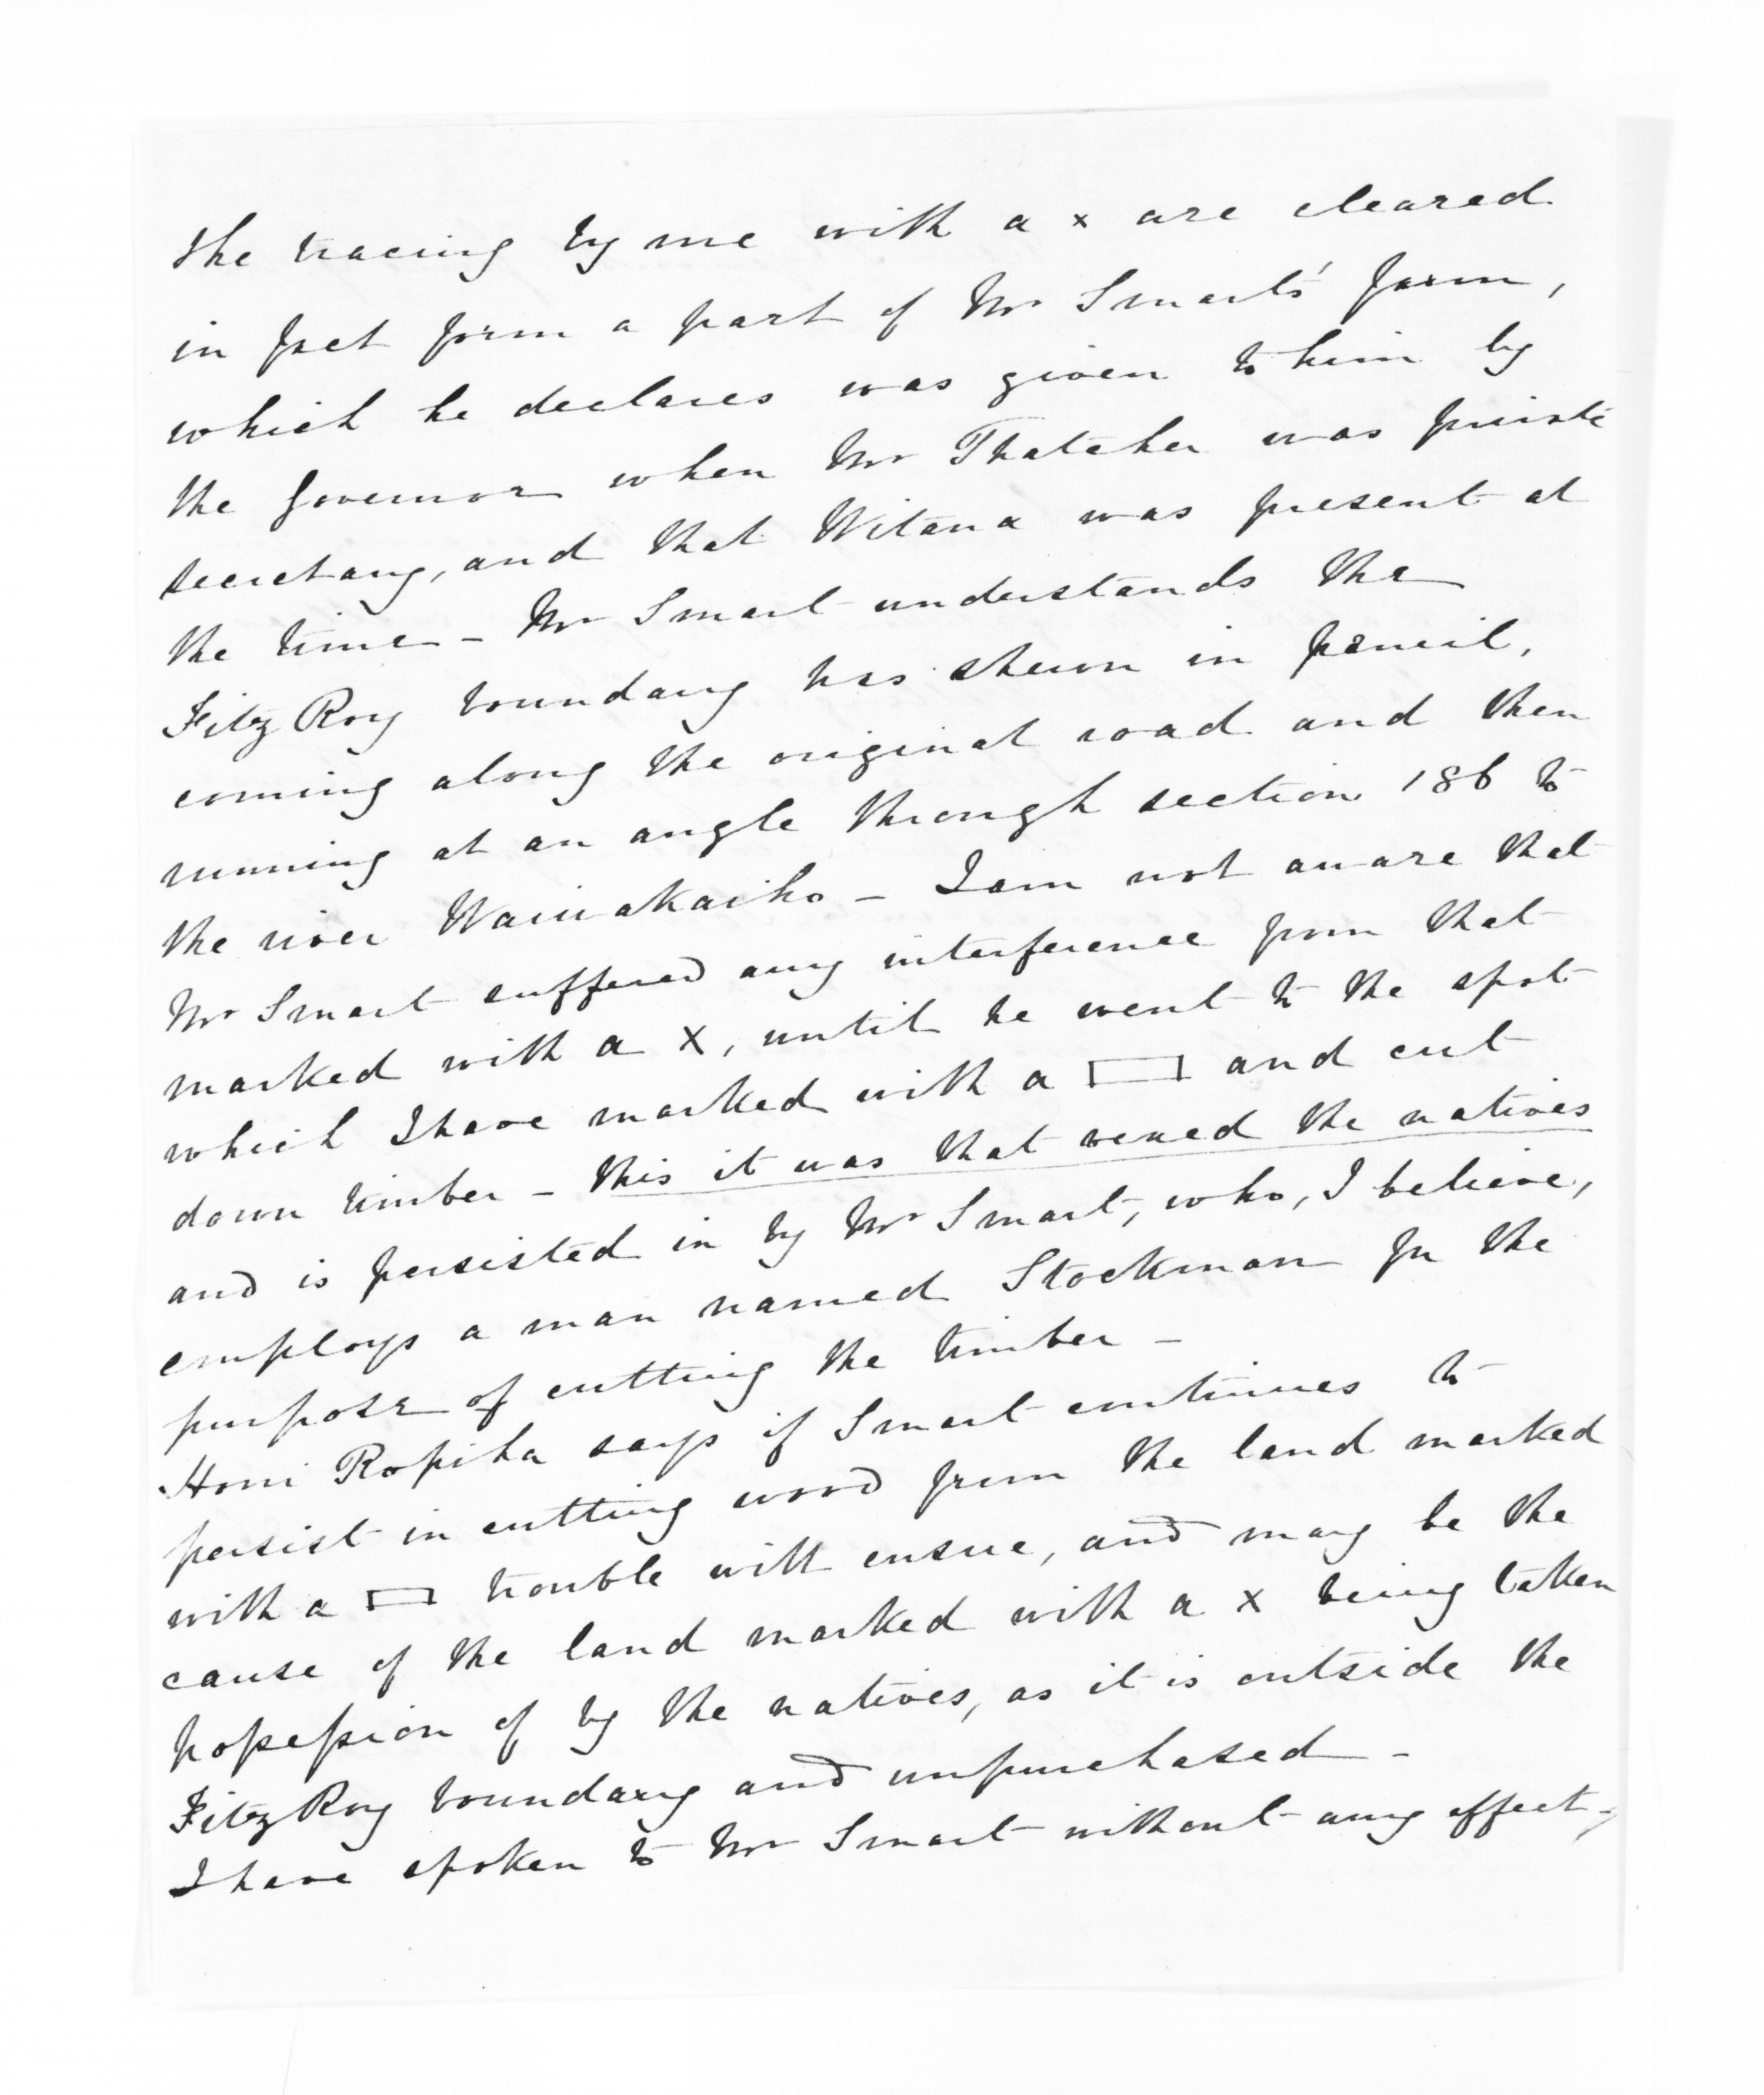 the tracing by me with a x are cleared
in fact form a part of Mr Smart's farm,
which he declares was given to him by
the Governor when Mr Thatcher was private
secretary, and that Witana was present at
the time – Mr Smart understands the
FitzRoy boundary has shewn in pencil,
coming along the original road and then
running at an angle through section 186 to
the river Waiwakaiho – I am not aware that
Mr Smart suffered any interference from that
marked with a X, until he went to the spot
which I have marked with a ▭ and cut
down timber – this it was that vexed the natives
and is persisted in by Mr Smart, who, I believe,
employs a man named Stockman for the
purpose of cutting the timber –
Honi Ropiha says if Smart continues to
persist in cutting wood from the land marked
with a ▭ trouble will ensue, and may be the
cause of the land marked with a x being taken
possession of by the natives, as it is outside the
FitzRoy boundary and unpurchased –
I have spoken to Mr Smart without any effect –